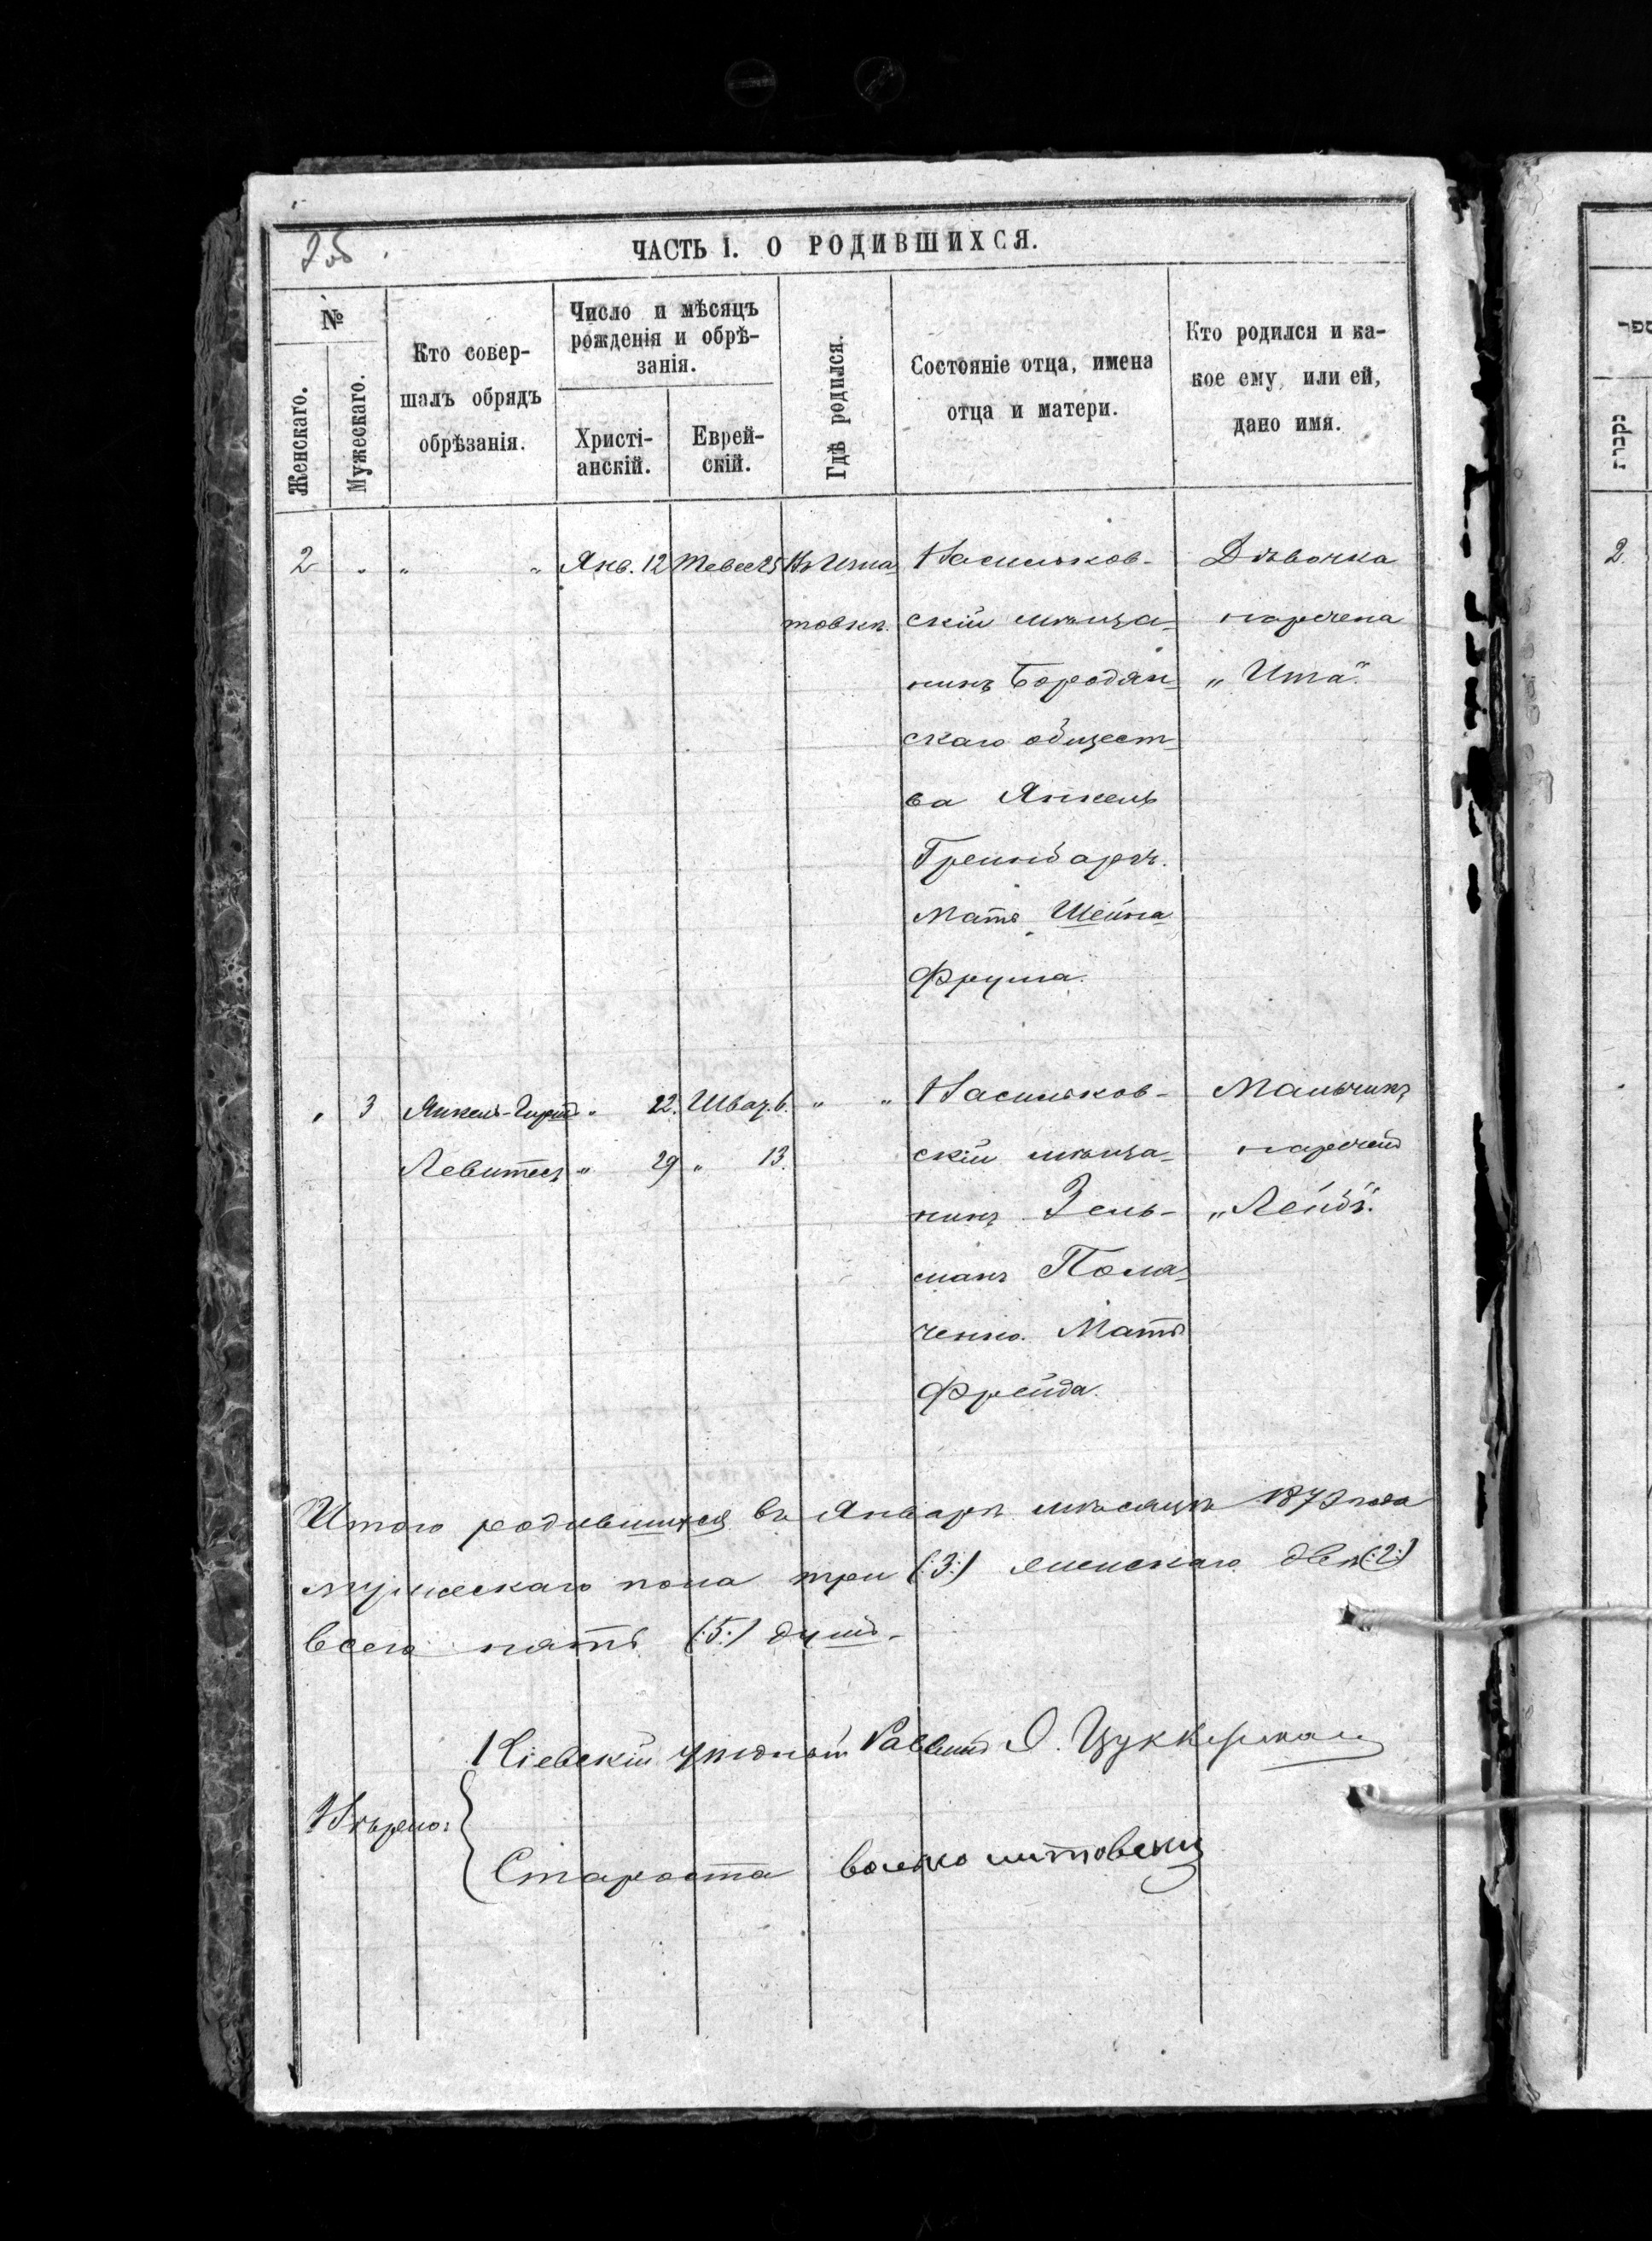 ЧАСТЬ I. О РОДИВШИХСЯ.
№
Женскаго.
Мужескаго.
Кто совер-
шалъ обрядъ
обрѣзанія.
Число и мѣсяцъ
рожденія и обрѣ-
занія.
Христі-
анскій.
Еврей-
скій.
Гдѣ родился.
Состояніе отца, имена
отца и матери.
Кто родился и ка-
кое ему, или ей,
дано имя.
2 „ „ „ Янв. 12 Тевес 25 Въ Игна-
товкѣ.
Васильков-
скій мѣща-
нинъ Бородян-
скаго общест-
ва Янкель
Гринбаргъ.
Мать Шейна
Фрума.
Дѣвочка
наречена
„Ита".
„ 3 Янкель- „ 22. Шват. 6. „ „
Левитесъ „ 29 „ 13.
Васильков-
скій мѣща-
нинъ Зель-
манъ Пола-
ченко. Мать
Фрейда.
Мальчикъ
нареченъ
„Лейбъ".
Итого родившихся въ Январѣ мѣсяцѣ 1873 года
мужескаго пола три (:3:) женскаго двѣ (:2:)
всего пять (:5:) душъ.
Кіевскій уѣздный Раввинъ Цуккерман
Вѣрно:
Староста
2